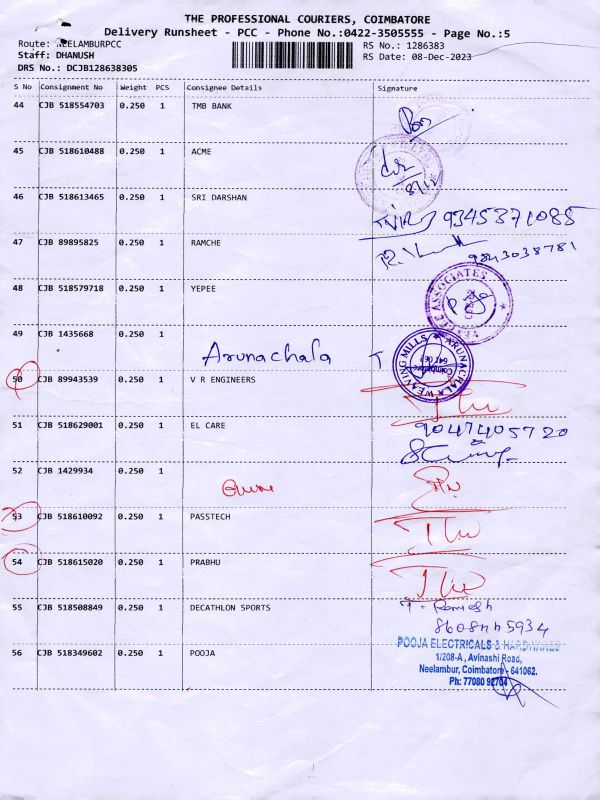 THE PROFESSIONAL COURIERS, COIMBATORE
Delivery Runsheet - PCC - Phone No.:0422-3505555 - Page No.:5
Route: NEELAMBURPCC
RS No.: 1286383
Staff: DHANUSH
RS Date: 08-Dec-2023
DRS No.: DCJB128638305
S No Consignment No Weight PCS Consignee Details Signature
44 CJB 518554703 0.250 1 TMB BANK
45 CJB 518610488 0.250 1 ACME
8/12
46 CJB 518613465 0.250 1 SRI DARSHAN
9345371085
47 CJB 89895825 0.250 1 RAMCHE
9843038781
48 CJB 518579718 0.250 1 YEPEE
ASSOCIATES
49 CJB 1435668 0.250 1
Arunachala T
ARUNACHALA WEAVING MILLS
Coimbatore
641 062
50 CJB 89943539 0.250 1 V R ENGINEERS
51 CJB 518629001 0.250 1 EL CARE
9047405720
52 CJB 1429934 0.250 1
53 CJB 518610092 0.250 1 PASSTECH
54 CJB 518615020 0.250 1 PRABHU
55 CJB 518508849 0.250 1 DECATHLON SPORTS
T. Ramesh
8608445934
56 CJB 518349602 0.250 1 POOJA
POOJA ELECTRICALS & HARDWARES
1/208-A, Avinashi Road,
Neelambur, Coimbatore - 641062.
Ph: 77080 92704